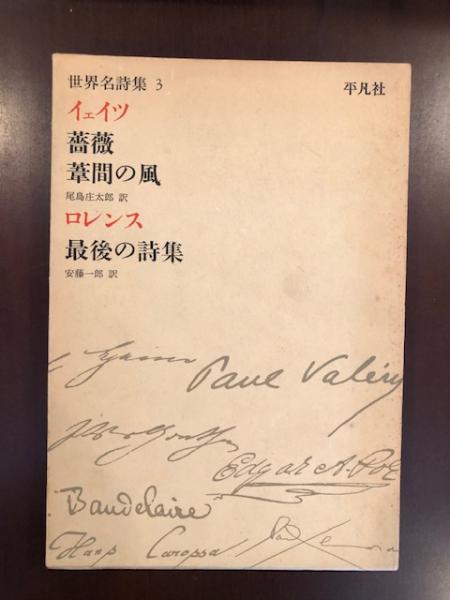 世界名詩集 3
平凡社
イェイツ
薔薇
葦間の風
尾島庄太郎 訳
ロレンス
最後の詩集
安藤一郎 訳
Paul Valéry
Edgar A. Poe
Baudelaire
Hans Carossa